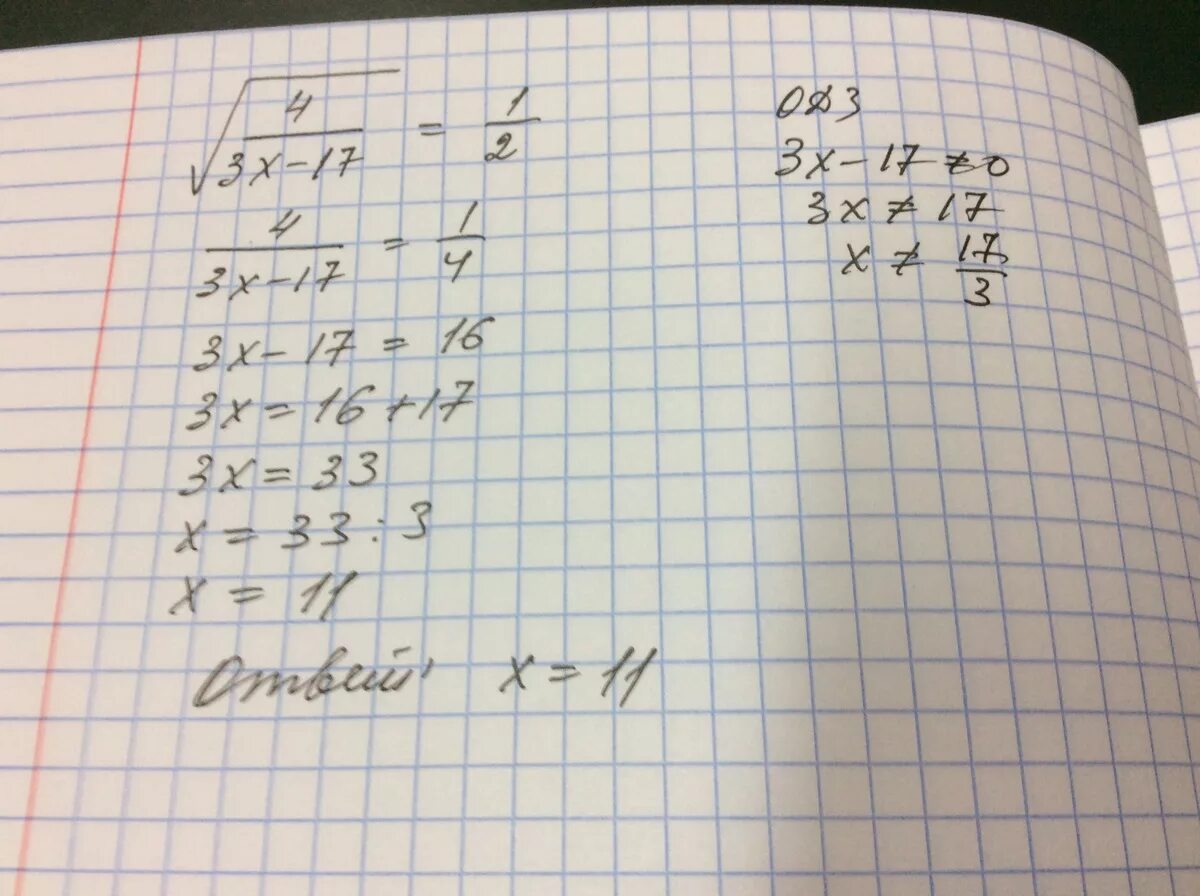 √(4/(3x-17)) = 1/2
4/(3x-17) = 1/4
3x-17 = 16
3x = 16+17
3x = 33
x = 33:3
x = 11
Ответ: x = 11
ОДЗ
3x-17 ≠ 0
3x ≠ 17
x ≠ 17/3